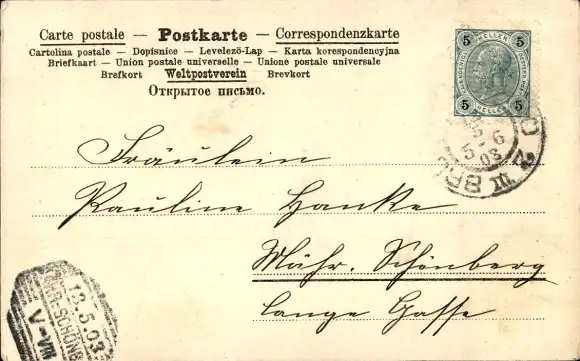 Carte postale — Postkarte — Correspondenzkarte
Cartolina postale — Dopisnice — Levelező-Lap — Karta korespondencyjna
Briefkaart — Union postale universelle — Unione postale universale
Brefkort Weltpostverein Brevkort
Открытое письмо.
5 HELLER 5
5 HELLER 5
5-6
03
III BR
2
Fräulein
Pauline Hanke
Mähr. Schönberg
lange Gasse
13.5.03
MÄHR.-SCHÖNB
V-VIII